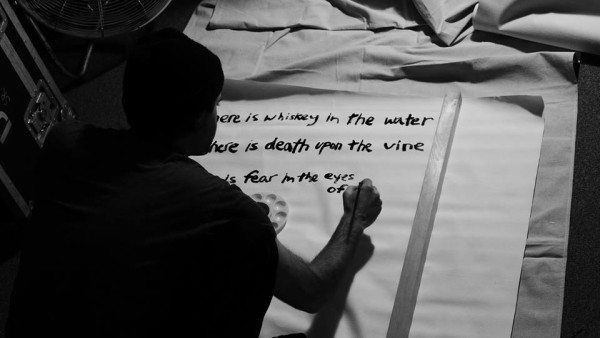 here is whiskey in the water
here is death upon the vine
is fear in the eyes
of